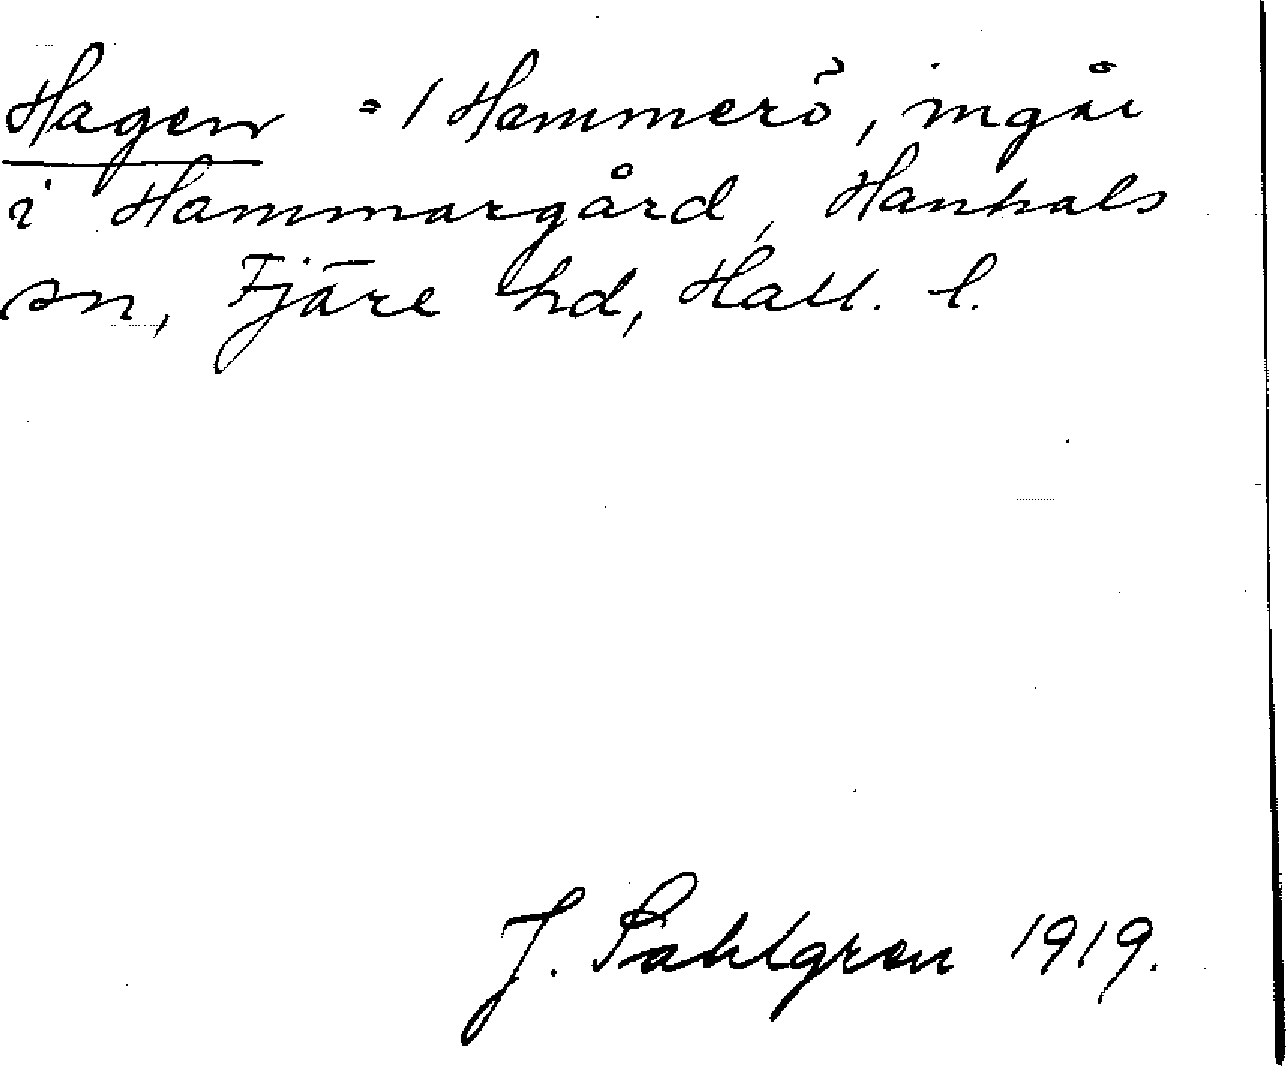 Hagen = / Hammerö, ingår
i Hammargård, Hanhals
sn, Fjäre hd, Hall. l.
J. Sahlgren 1919.